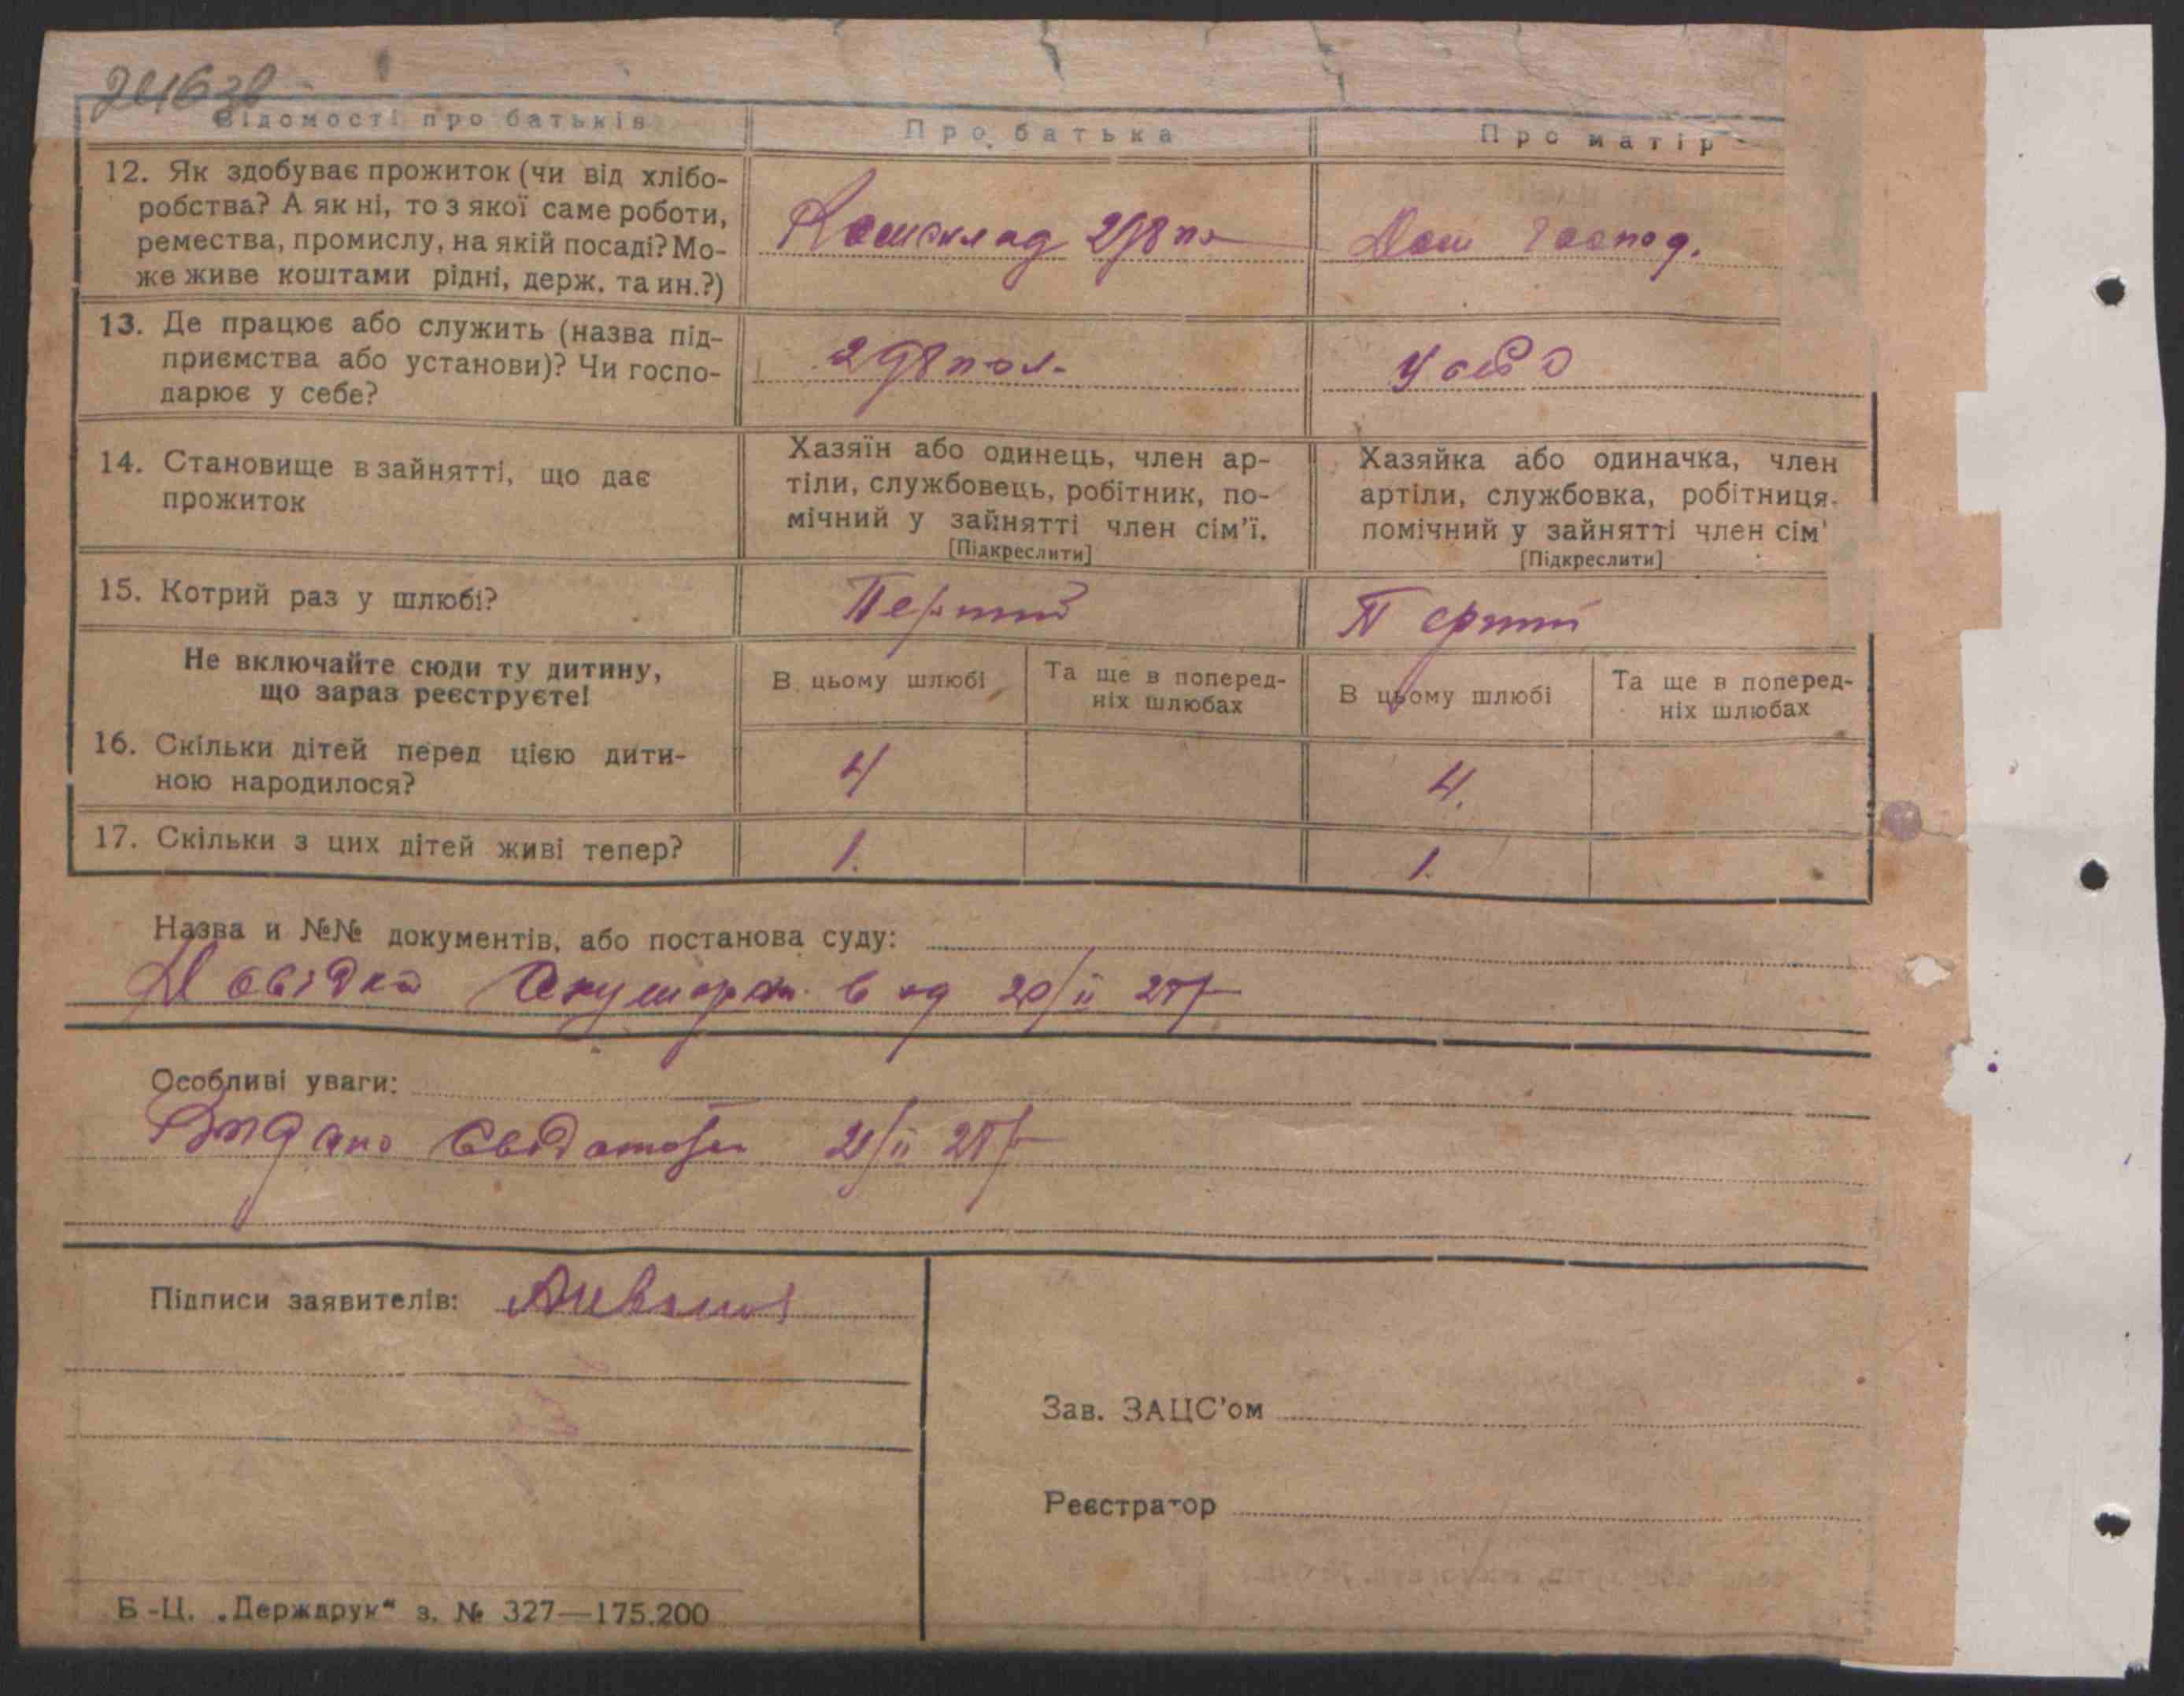 Відомості про батьків
Про батька
Про матір
12. Як здобуває прожиток (чи від хлібо-
робства? А як ні, то з якої саме роботи,
ремества, промислу, на якій посаді? Мо-
же живе коштами рідні, держ. та ин.?)
298 по
Дом господ.
13. Де працює або служить (назва під-
приємства або установи)? Чи госпо-
дарює у себе?
298 пол.
У себе
14. Становище в зайнятті, що дає
прожиток
Хазяїн або одинець, член ар-
тіли, службовець, робітник, по-
мічний у зайнятті член сім'ї.
[Підкреслити]
Хазяйка або одиначка, член
артіли, службовка, робітниця.
помічний у зайнятті член сім'
[Підкреслити]
15. Котрий раз у шлюбі?
Перший
Перший
Не включайте сюди ту дитину,
що зараз реєструєте!
В цьому шлюбі
Та ще в поперед-
ніх шлюбах
В цьому шлюбі
Та ще в поперед-
ніх шлюбах
16. Скільки дітей перед цією дити-
ною народилося?
4
4.
17. Скільки з цих дітей живі тепер?
1.
1.
Назва и №№ документів, або постанова суду:
Довідка Акушерки
Особливі уваги:
Видано
Підписи заявителів:
Зав. ЗАЦС'ом
Реєстратор
Б-Ц. „Держдрук“ з. № 327—175.200